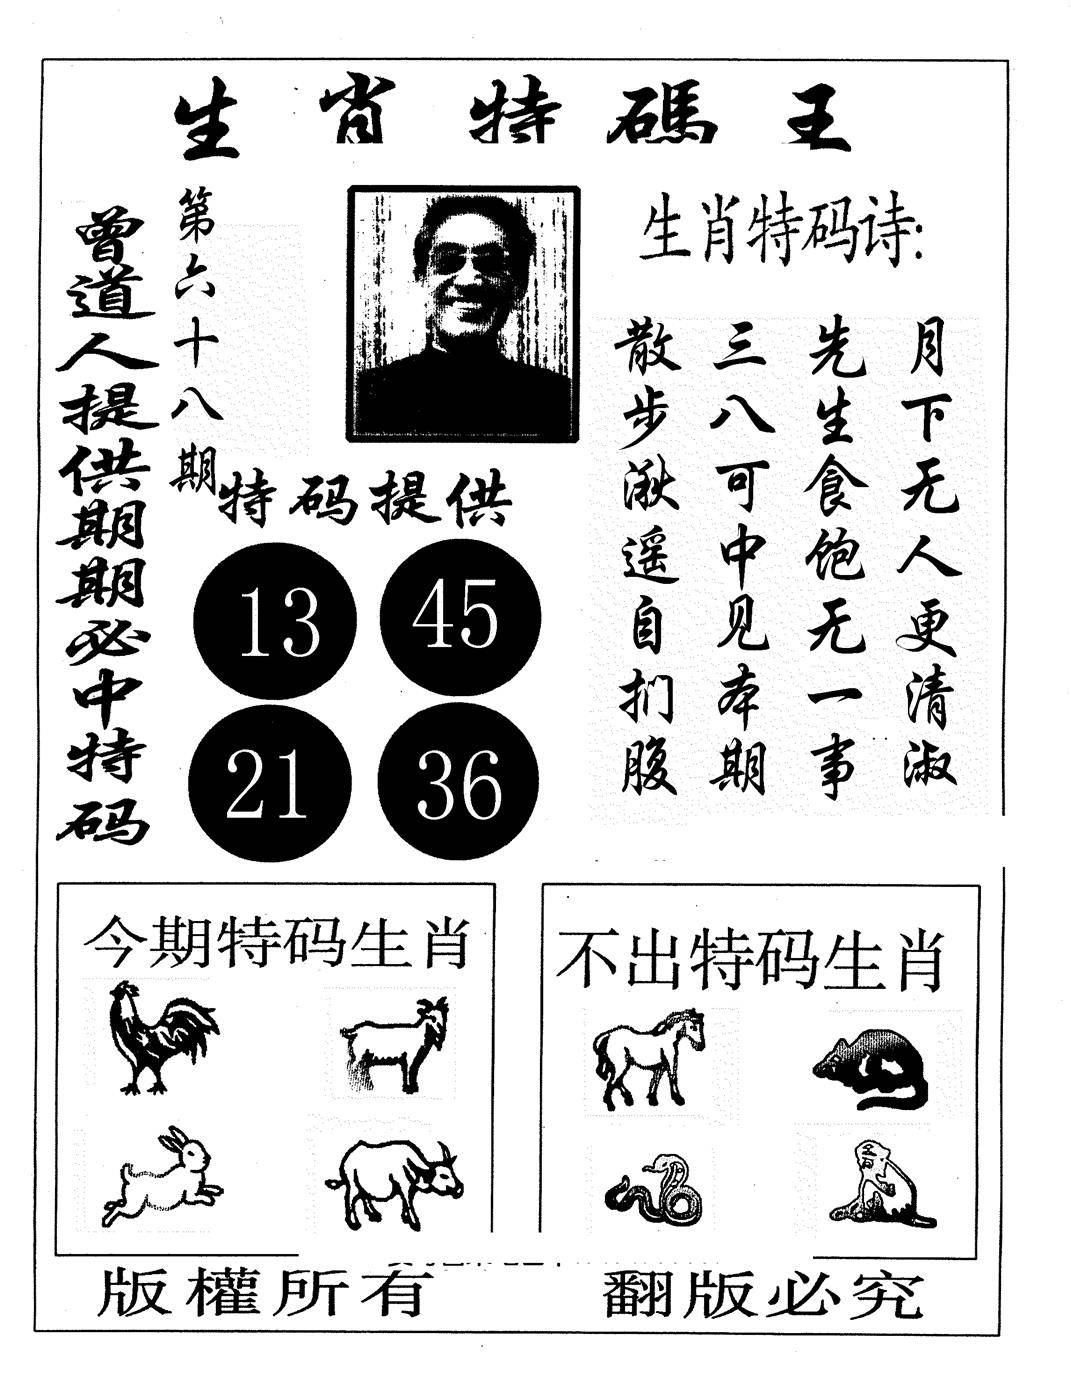 生肖特碼王
曾道人提供期期必中特码
第六十八期
生肖特码诗:
月下无人更清淑
先生食饱无一事
三八可中见本期
散步湫遥自扪腹
特码提供
13 45
21 36
今期特码生肖
不出特码生肖
版權所有
翻版必究